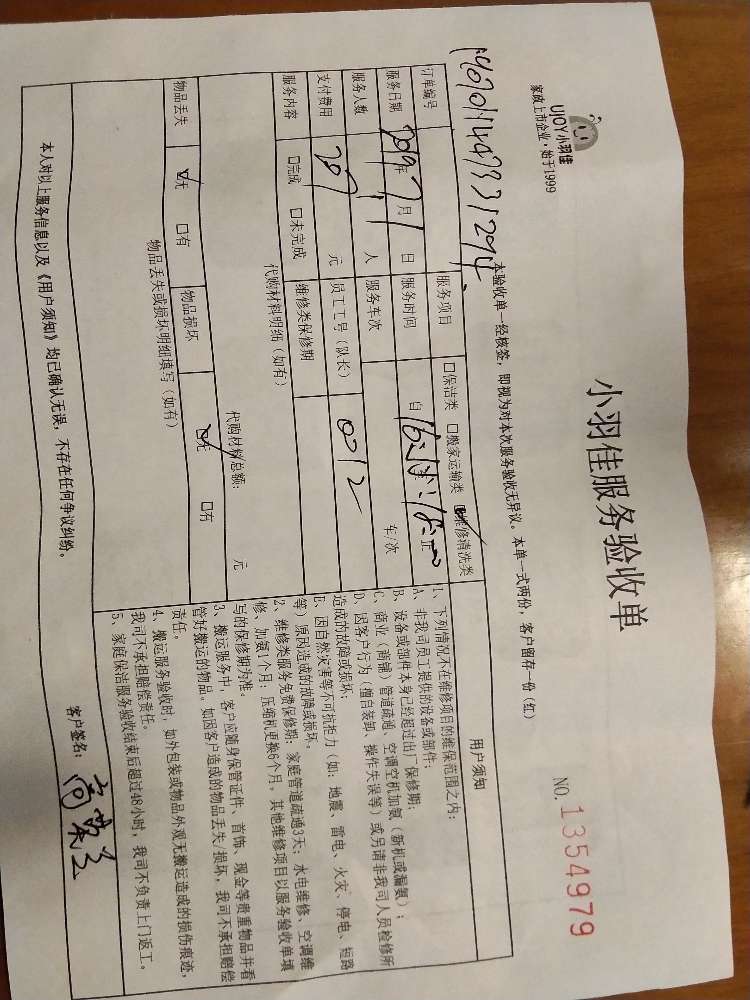 UJOY小羽佳
家政上市企业·始于1999
小羽佳服务验收单
NO. 1354979
本验收单一经核签，即视为对本次服务验收无异议。本单一式两份，客户留存一份（红）
订单编号
服务项目 □保洁类 □搬家运输类 ☑维修清洗类
服务日期 2019年7月1日 服务时间 自 至 止
服务人数 1人 服务车次 车/次
支付费用 元 员工工号（队长） 0012
服务内容 □完成 □未完成 维修类保修期
代购材料明细（如有）
代购材料总额： 元
物品丢失 ☑无 □有 物品损坏 ☑无 □有
物品丢失或损坏明细填写（如有）
用户须知
1、下列情况不在维修项目的维保范围之内：
A、非我司员工提供的设备或部件；
B、设备或部件本身已经超过出厂保修期；
C、商业（商铺）管道疏通、空调空机加氨（新机或漏氨）；
D、因客户行为（擅自装卸、操作失误等）或另请非我司人员检修所
造成的故障或损坏；
E、因自然灾害等不可抗拒力（如：地震、雷电、火灾、停电、短路
等）原因造成的故障或损坏。
2、维修类服务免费保修期：家庭管道疏通3天；水电维修、空调维
修、加氨1个月；压缩机更换6个月，其他维修项目以服务验收单填
写的保修期为准。
3、搬运服务中，客户应随身保管证件、首饰、现金等贵重物品并看
管好搬运的物品。如因客户造成的物品丢失/损坏，我司不承担赔偿
责任。
4、搬运服务验收时，如外包装或物品外观无搬运造成的损伤痕迹，
我司不承担赔偿责任。
5、家庭保洁服务验收结束后超过48小时，我司不负责上门返工。
本人对以上服务信息以及《用户须知》均已确认无误，不存在任何争议纠纷。
客户签名：